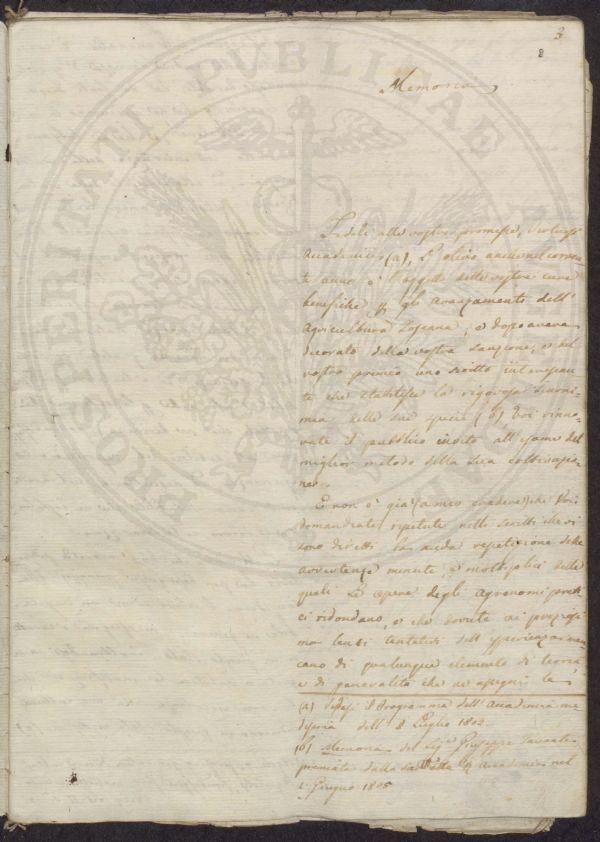 3
8
Memoria
Fedeli alle vostre promesse,
Accademici (a), L'olivo anche nel corren
te anno è l'oggetto delle vostre cure
benefiche gli avanzamenti dell'
Agricultura Toscana; e dopo avere
decorato della vostra sanzione, e del
vostro premio uno scritto interessan
te che stabilisce la rigorosa Sinoni-
mia delle sue specie (b), Voi rinno-
vate il pubblico invito all'esame del
miglior metodo della sua coltivazio-
ne.
E non è già (a mio credere) che Voi
domandiate ripetute negli scritti che vi
sono diretti la nuda repetizione delle
avvertenze minute, e moltiplici delle
quali Le opere degli Agronomi prati
ci ridondano, e che dovute ai
ma lenti tentativi dell'esperienza man
cano di qualunque elemento di teoria
e di generalità che ne assegni la
(a) Vedasi il Programma dell'Accademia me
desima dell' 8 Luglio 1802.
(b) Memoria del Sig. Giuseppe Tavanti
premiata dalla Accademia nel
Giugno 1805
PROSPERITATI PVBLICAE AVGENDAE